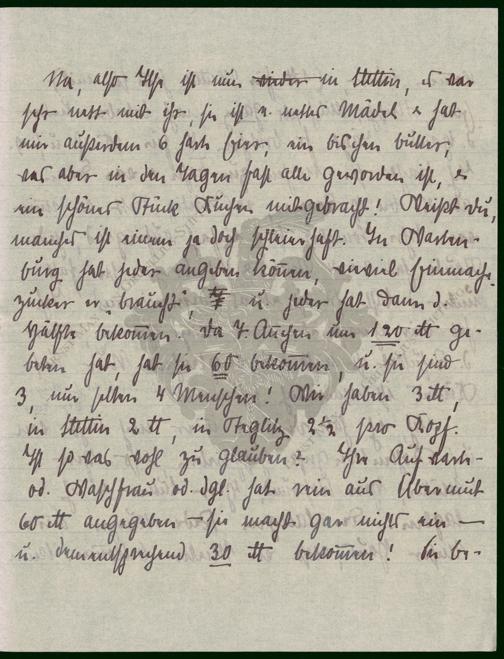 Na, also Ilse ist nun wieder in Stettin, es war
sehr nett mit ihr, sie ist e. nettes Mädel & hat
mir außerdem 6 harte Eier ein bischen butter,
was aber in den Tagen fast alle geworden ist, &
ein schönes Stück Kuchen mitgebracht! Weißt du,
manches ist einem ja doch schleierhaft. In Warten-
burg hat jeder angeben können, wieviel Einmach-
zucker er "braucht", u. jeder hat dann d.
Hälfte bekommen. Da T. Annchen um 120 ℔ ge-
beten hat hat sie 60 bekommen, u. sie sind
3, nur selten 4 Menschen! Wir haben 3 ℔,
in Stettin 2 ℔, in Steglitz 2½ pro Kopf.
Ist so was wohl zu glauben? Ihre Aufwarte-
od. Waschfrau od. dgl. hat rein aus Übermut
60 ℔ angegeben – sie macht gar nichts ein –
u. dementsprechend 30 ℔ bekommen! Sie be-